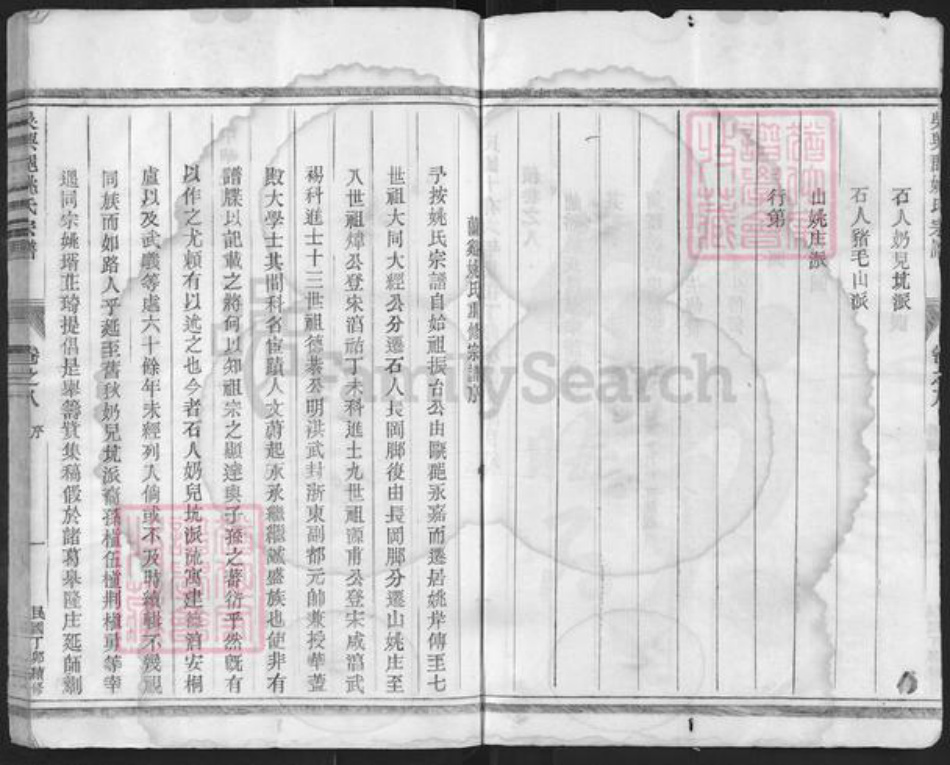 石人奶兒坑派
石人豬毛山派
山姚庄派
行第
卷之八
蘭谿姚氏重修宗譜序
予按姚氏宗譜自始祖振台公由甌郡永嘉而遷居姚岸傳至七
世祖大同大經公分遷石人長岡脚復由長岡脚分遷山姚庄至
八世祖煒公登宋淳祐丁未科進士九世祖源甫公登宋咸淳武
錫科進士十三世祖德 公明洪武封浙東副都元帥兼授華蓋
殿大學士其間科名宦蹟人文蔚起承承繼繼誠盛族也使非有
譜牒以記載之將何以知祖宗之顯達與子孫之蕃衍乎然旣有
以作之尤賴有以述之也今者石人奶兒坑派流寓建德淳安桐
廬以及武義等處六十餘年未經列入倘或不及時續輯不幾視
同族而如路人乎延至舊秋奶兒坑派裔孫植伍植荆植 等幸
遇同宗姚壻 琦提倡是舉籌貲集稿假於諸葛 隆庄延師剞
吳興郡姚氏宗譜
卷之八
序
一
民國丁卯續修
FamilySearch